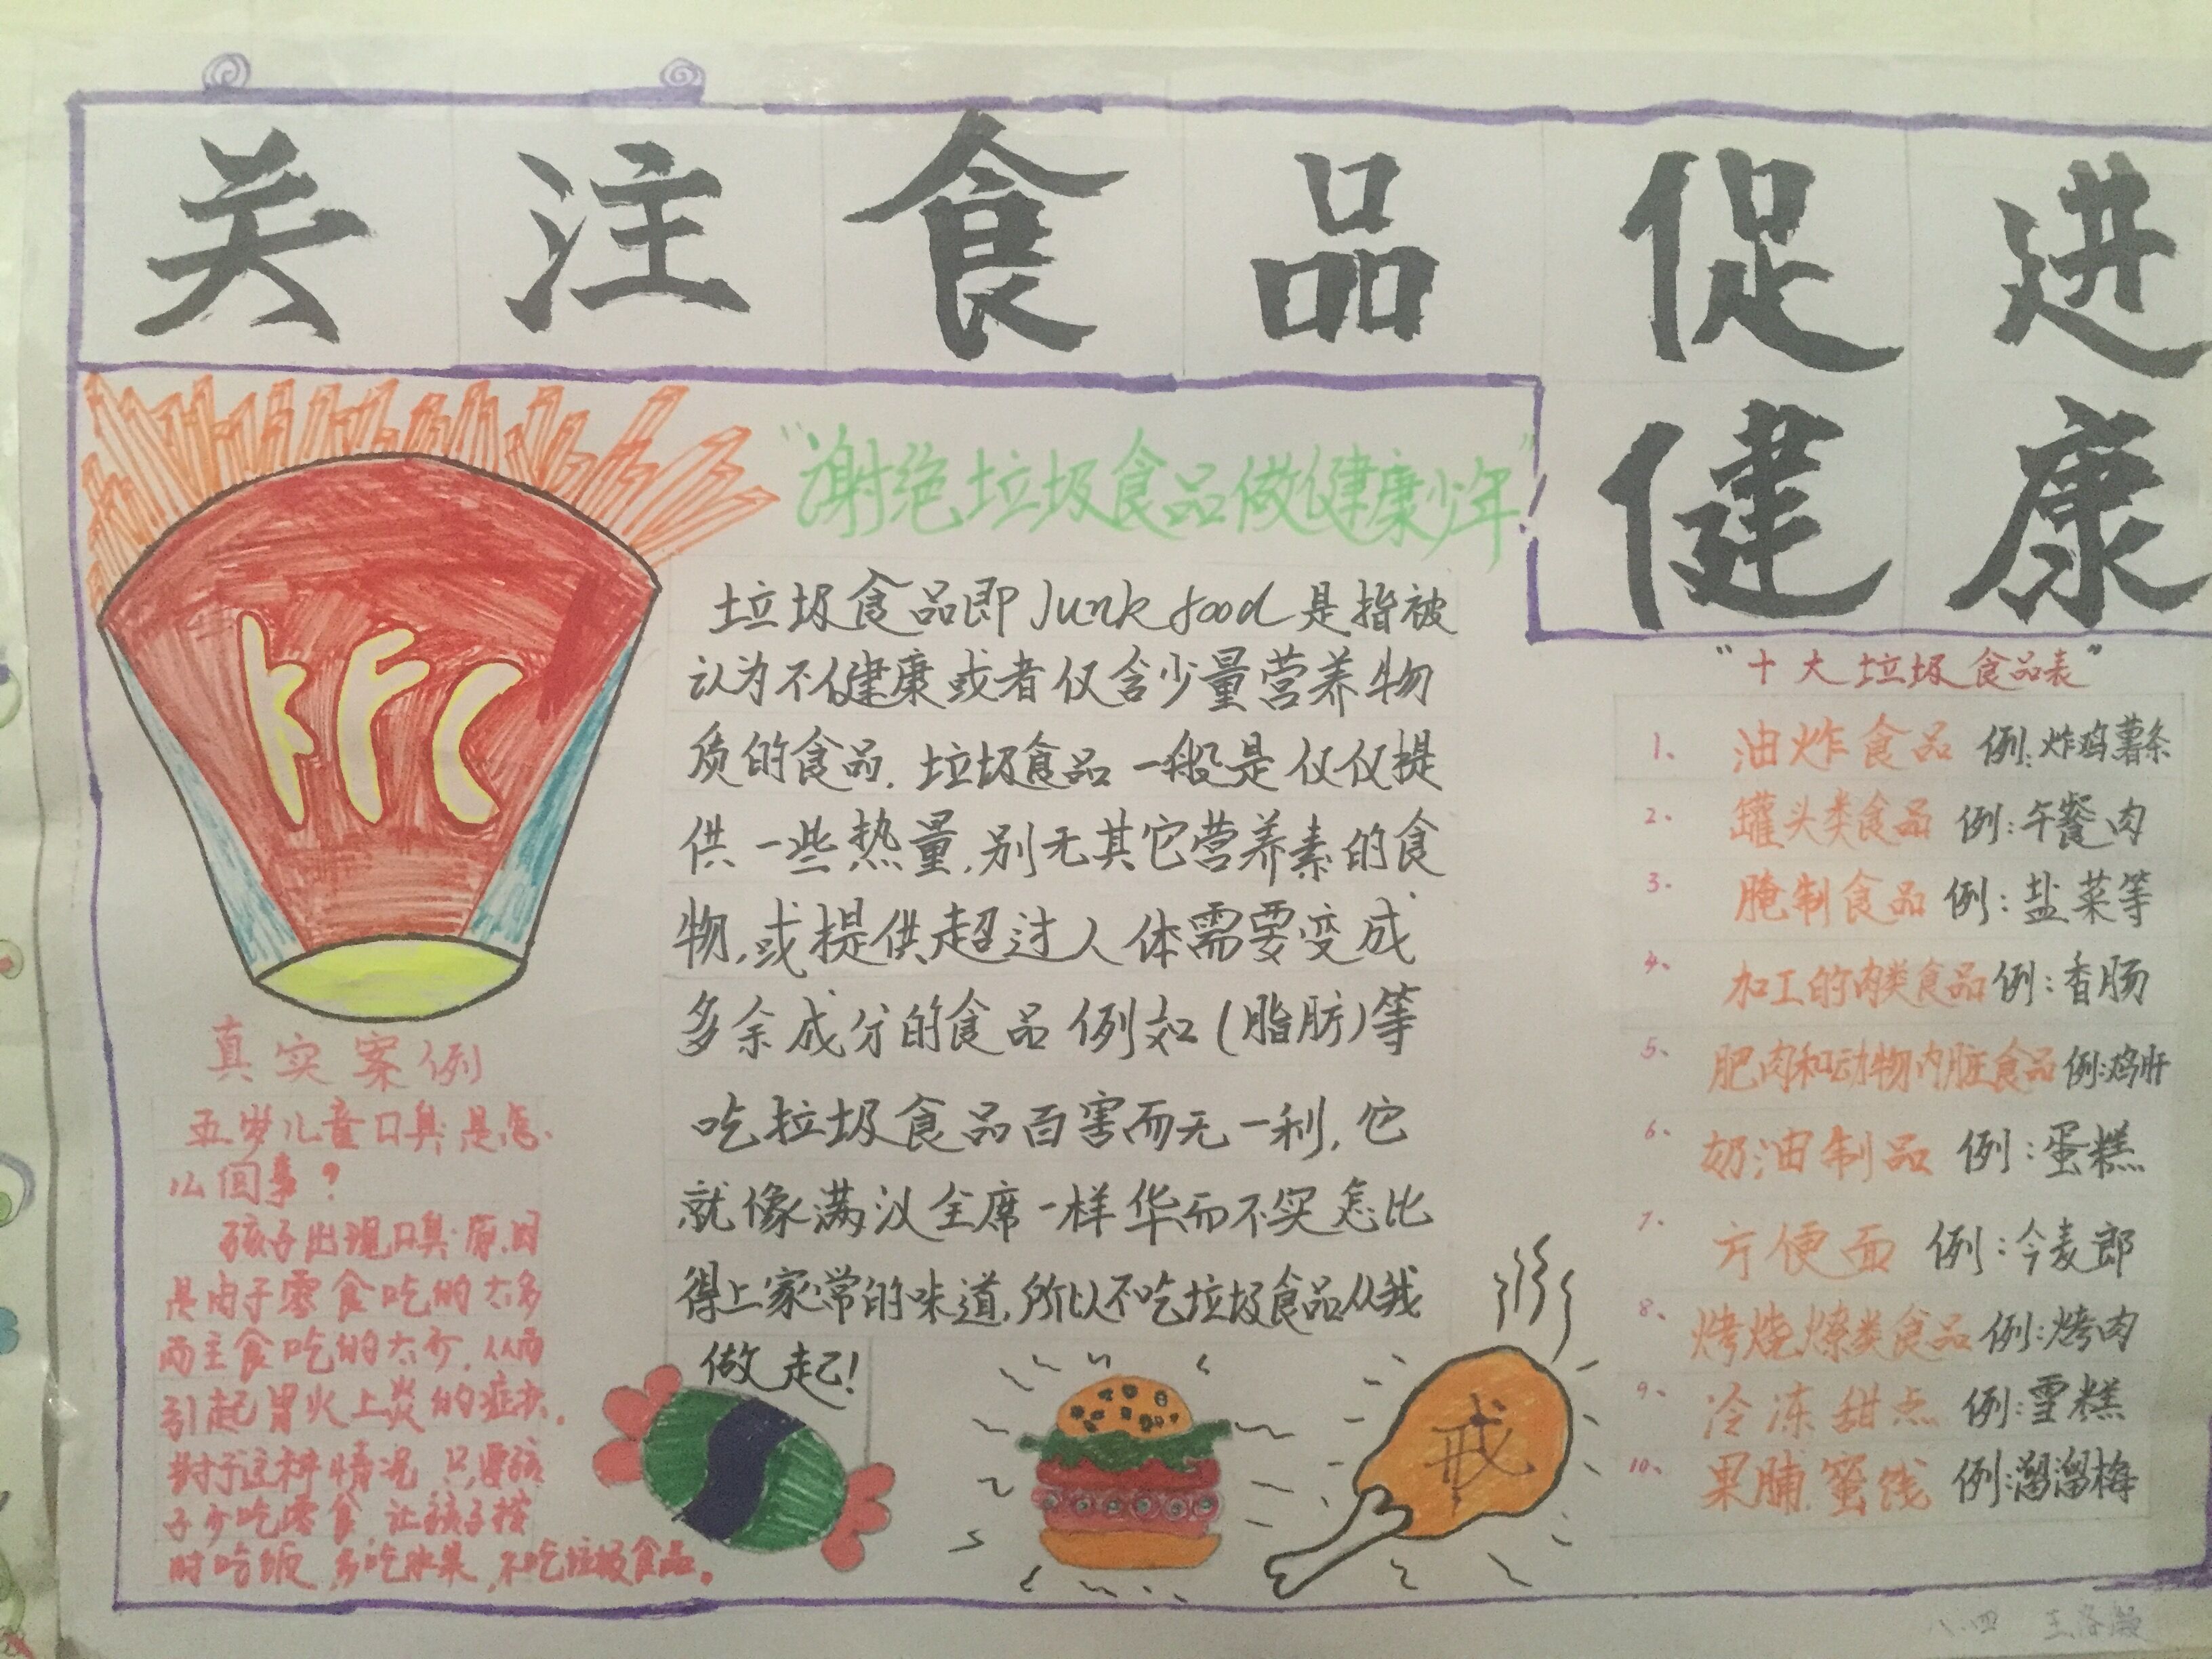 关注食品促进
健康
KFC
"谢绝垃圾食品做健康少年"!
垃圾食品即Junk food是指被
认为不健康或者仅含少量营养物
质的食品.垃圾食品一般是仅仅提
供一些热量,别无其它营养素的食
物,或提供超过人体需要变成
多余成分的食品例如(脂肪)等
吃垃圾食品百害而无一利,它
就像满汉全席一样华而不实怎比
得上家常的味道,所以不吃垃圾食品从我
做起!
真实案例
五岁儿童口臭是怎
么回事?
孩子出现口臭原因
是由于零食吃的太多
而主食吃的太少,从而
引起胃火上炎的症状.
对于这种情况,只要孩
子少吃零食,让孩子按
时吃饭,多吃水果,不吃垃圾食品。
戒
"十大垃圾食品表"
1、油炸食品 例:炸鸡薯条
2、罐头类食品 例:午餐肉
3、腌制食品 例:盐菜等
4、加工的肉类食品 例:香肠
5、肥肉和动物内脏食品 例:鸡肝
6、奶油制品 例:蛋糕
7、方便面 例:今麦郎
8、烤烧燎类食品 例:烤肉
9、冷冻甜点 例:雪糕
10、果脯.蜜饯 例:溜溜梅
八.四 王